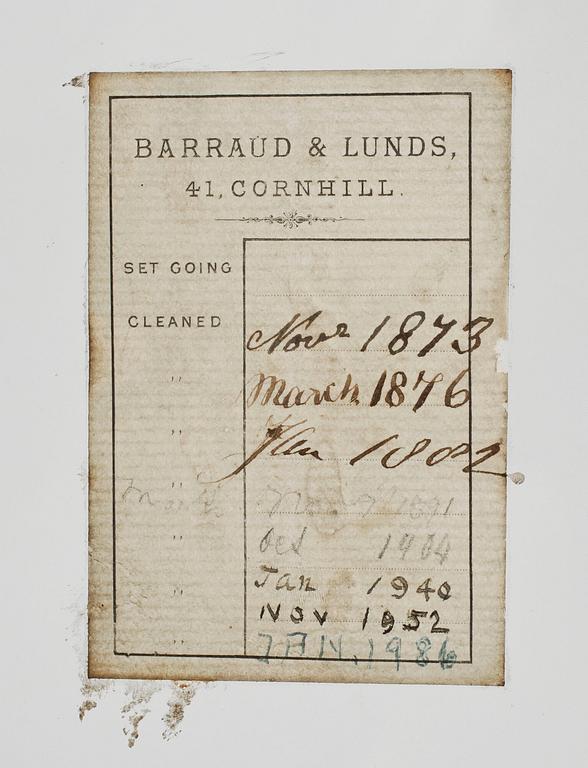 BARRAUD & LUNDS,
41, CORNHILL.
SET GOING
CLEANED Novr 1873
" March 1876
" Jan 1882
" 1891
" Oct 1904
" Jan 1940
NOV 1952
" JAN. 1986